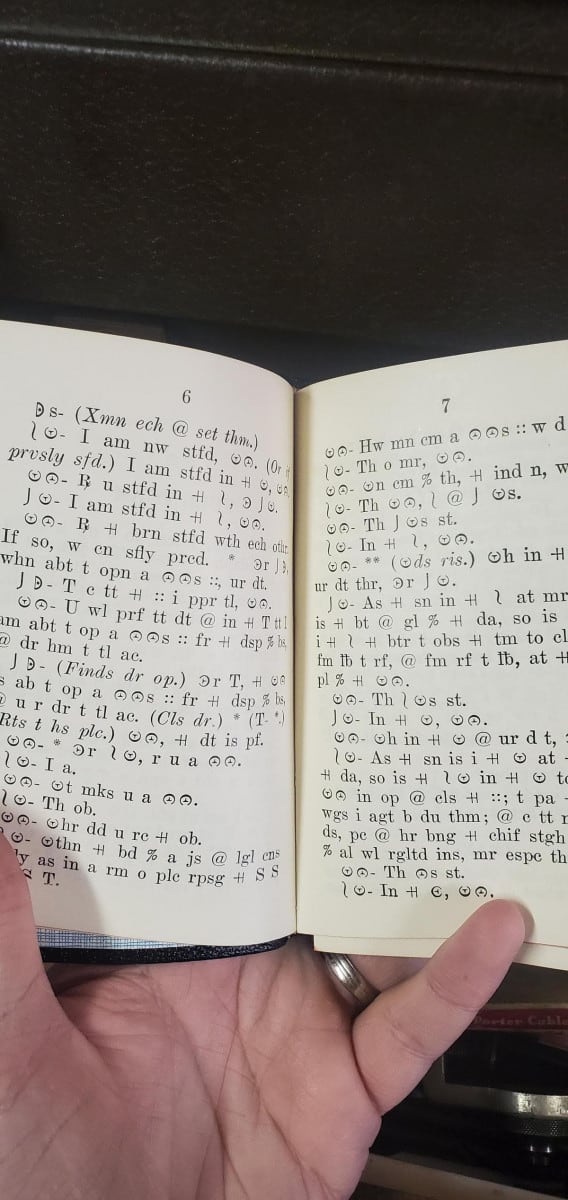 6
ᗡ s- (Xmn ech @ set thm.)
⟅ ⊙- I am nw stfd, ⊙⊙. (Or if
prvsly sfd.) I am stfd in ⧺ ⊙, ⊙⊙.
⊙⊙- ꝶ u stfd in ⧺ ⟅, ⊙ J ⊙.
J ⊙- I am stfd in ⧺ ⟅, ⊙⊙.
⊙⊙- ꝶ ⧺ brn stfd wth ech othr.
If so, w cn sfly prcd. * ⊙r J ᗡ,
whn abt t opn a ⊙⊙s ::, ur dt.
J ᗡ- T c tt ⧺ :: i ppr tl, ⊙⊙.
⊙⊙- U wl prf tt dt @ in ⧺ T tt I
am abt t op a ⊙⊙s :: fr ⧺ dsp % bs,
@ dr hm t tl ac.
J ᗡ- (Finds dr op.) ⊙r T, ⧺ ⊙⊙
s ab t op a ⊙⊙s :: fr ⧺ dsp % bs,
@ u r dr t tl ac. (Cls dr.) * (T- *.)
Rts t hs plc.) ⊙⊙, ⧺ dt is pf.
⊙⊙- * ⊙r ⟅ ⊙, r u a ⊙⊙.
⟅ ⊙- I a.
⊙⊙- ⊙t mks u a ⊙⊙.
⟅ ⊙- Th ob.
⊙⊙- ⊙hr dd u rc ⧺ ob.
⊙- ⊙thn ⧺ bd % a js @ lgl cns
ly as in a rm o plc rpsg ⧺ S S
S T.
7
⊙⊙- Hw mn cm a ⊙⊙s :: w d
⟅ ⊙- Th o mr, ⊙⊙.
⊙⊙- ⊙n cm % th, ⧺ ind n, w
⟅ ⊙- Th ⊙⊙, ⟅ @ J ⊙s.
⊙⊙- Th J ⊙s st.
⟅ ⊙- In ⧺ ⟅, ⊙⊙.
⊙⊙- ** (⊙ds ris.) ⊙h in ⧺
ur dt thr, ⊙r J ⊙.
J ⊙- As ⧺ sn in ⧺ ⟅ at mr
is ⧺ bt @ gl % ⧺ da, so is
i ⧺ ⟅ ⧺ btr t obs ⧺ tm to cl
fm ℔ t rf, @ fm rf t ℔, at ⧺
pl % ⧺ ⊙⊙.
⊙⊙- Th ⟅ ⊙s st.
J ⊙- In ⧺ ⊙, ⊙⊙.
⊙⊙- ⊙h in ⧺ ⊙ @ ur d t,
⟅ ⊙- As ⧺ sn is i ⧺ ⊙ at
⧺ da, so is ⧺ ⟅ ⊙ in ⧺ ⊙ to
⊙⊙ in op @ cls ⧺ ::; t pa
wgs i agt b du thm; @ c tt n
ds, pc @ hr bng ⧺ chif stgh
% al wl rgltd ins, mr espc th
⊙⊙- Th ⊙s st.
⟅ ⊙- In ⧺ ⋲, ⊙⊙.
Porter Cable